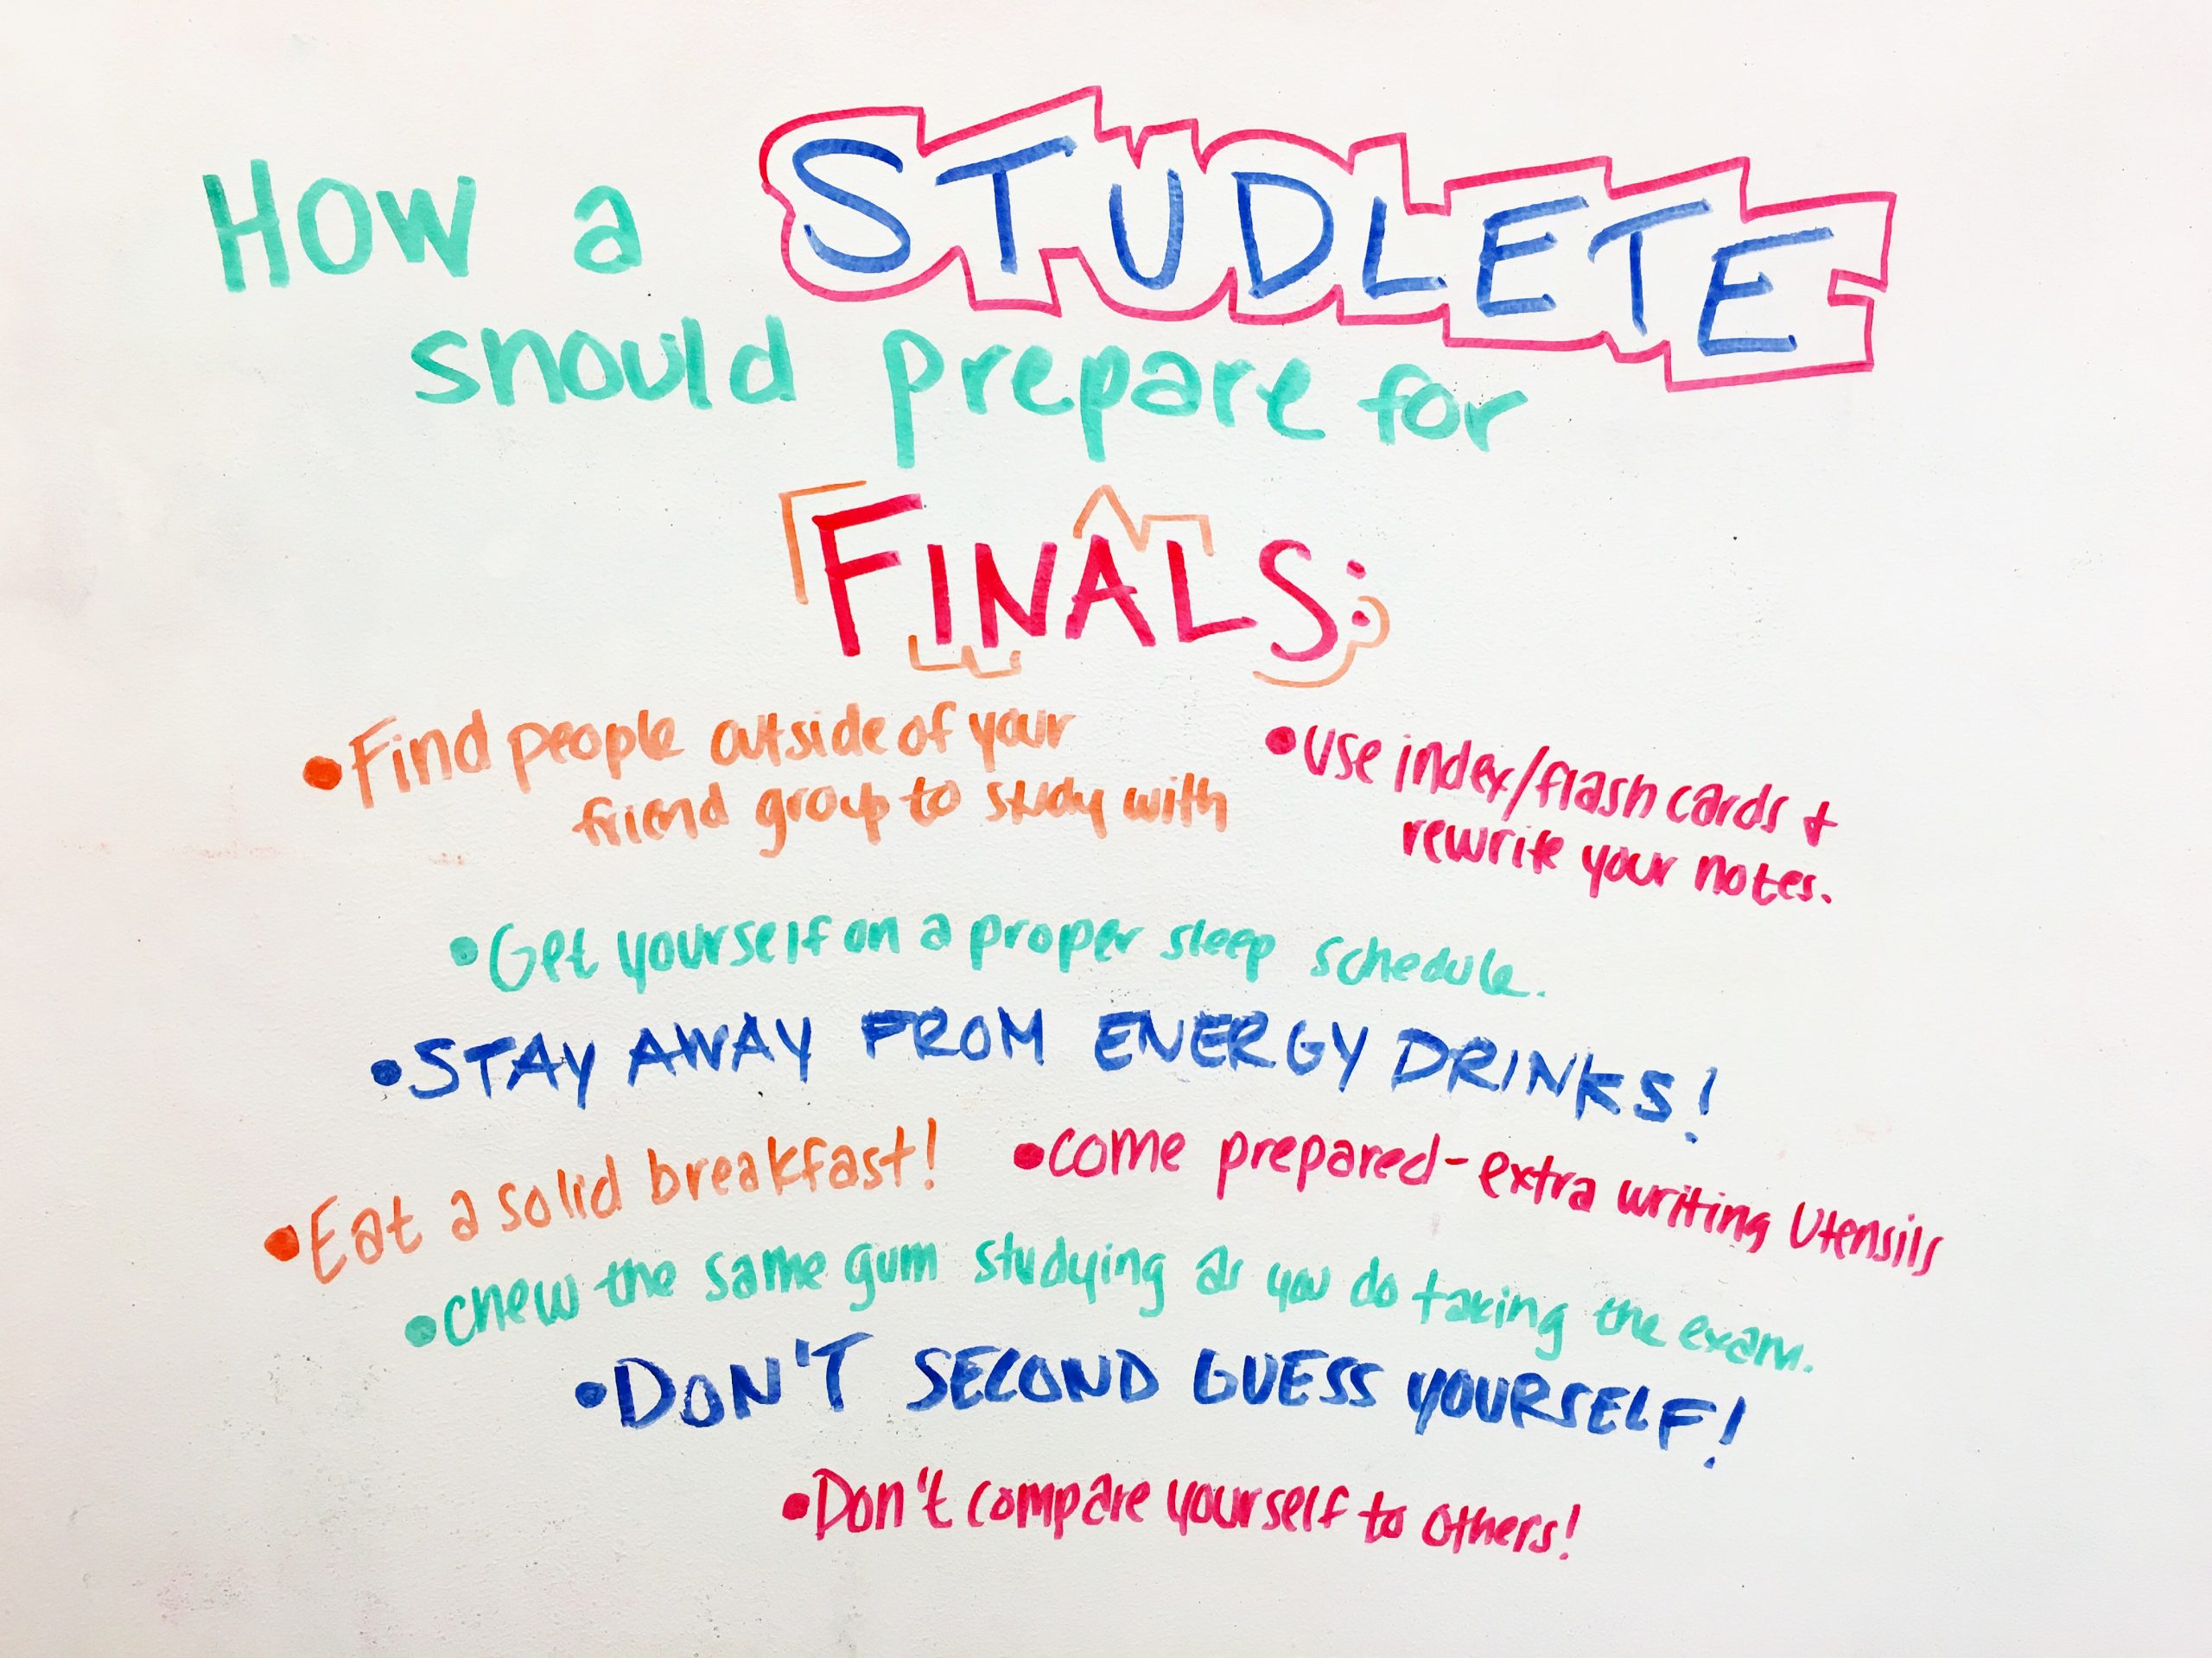 How a STUDLETE
should prepare for
FINALS:
•Find people outside of your
friend group to study with
•use index/flash cards +
rewrite your notes.
•Get yourself on a proper sleep schedule.
•STAY AWAY FROM ENERGY DRINKS!
•Eat a solid breakfast!
•come prepared-extra writing utensils
•chew the same gum studying as you do taking the exam.
•DON'T SECOND GUESS YOURSELF!
•Don't compare yourself to others!